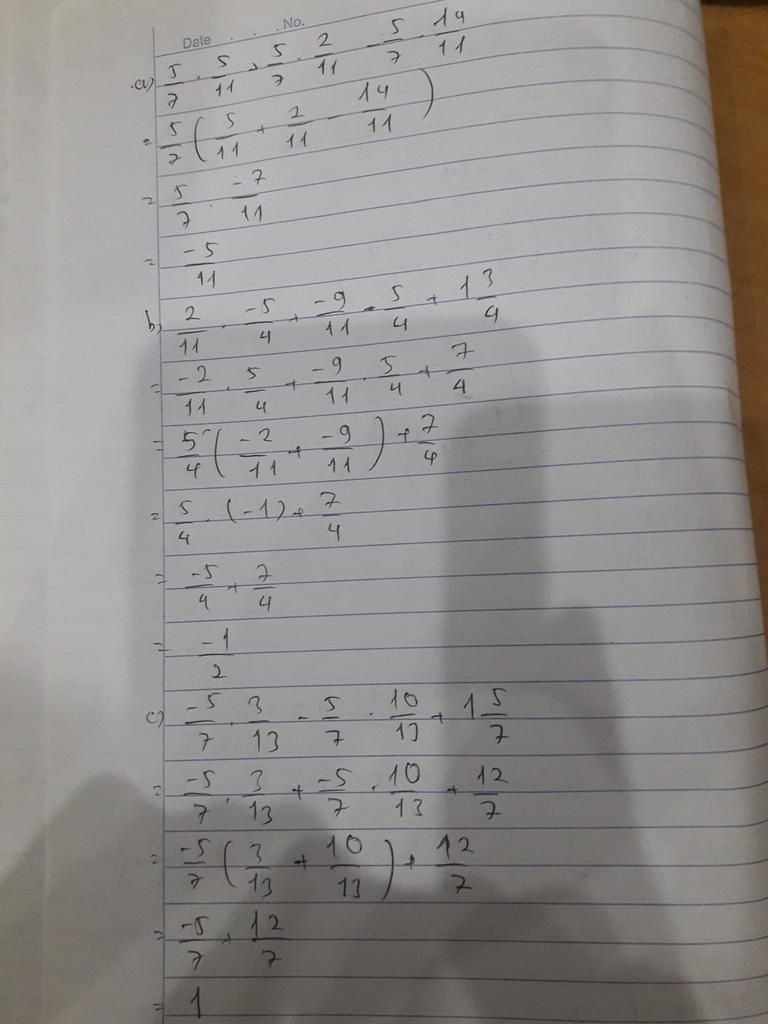 Date . . . No.
a) 5/7 . 5/11 + 5/7 . 2/11 - 5/7 . 14/11
= 5/7 ( 5/11 + 2/11 - 14/11 )
= 5/7 . -7/11
= -5/11
b) 2/11 . -5/4 + -9/11 . 5/4 + 1 3/4
= -2/11 . 5/4 + -9/11 . 5/4 + 7/4
= 5/4 ( -2/11 + -9/11 ) + 7/4
= 5/4 . (-1) + 7/4
= -5/4 + 7/4
= -1/2
c) -5/7 . 3/13 - 5/7 . 10/13 + 1 5/7
= -5/7 . 3/13 + -5/7 . 10/13 + 12/7
= -5/7 ( 3/13 + 10/13 ) + 12/7
= -5/7 + 12/7
= 1